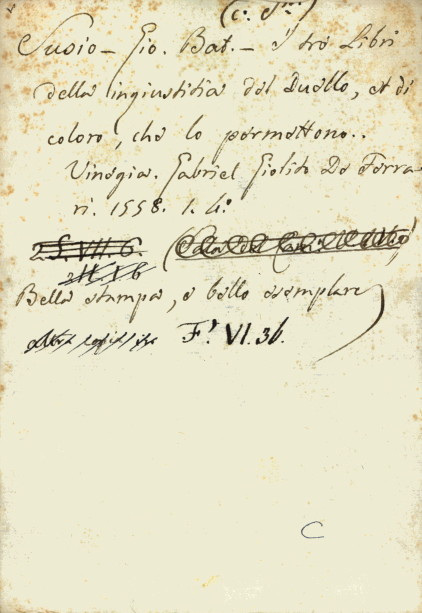 Susio - Gio. Bat. - i tre Libri
della ingiustitia del Duello, et di
coloro, che lo permettono..
Vinegia. Gabriel Giolito De Ferra
ri. 1558. 1. 4.°
2.S.VII.6.
Bella stampa, e bello esemplare)
F.r VI. 36.
C